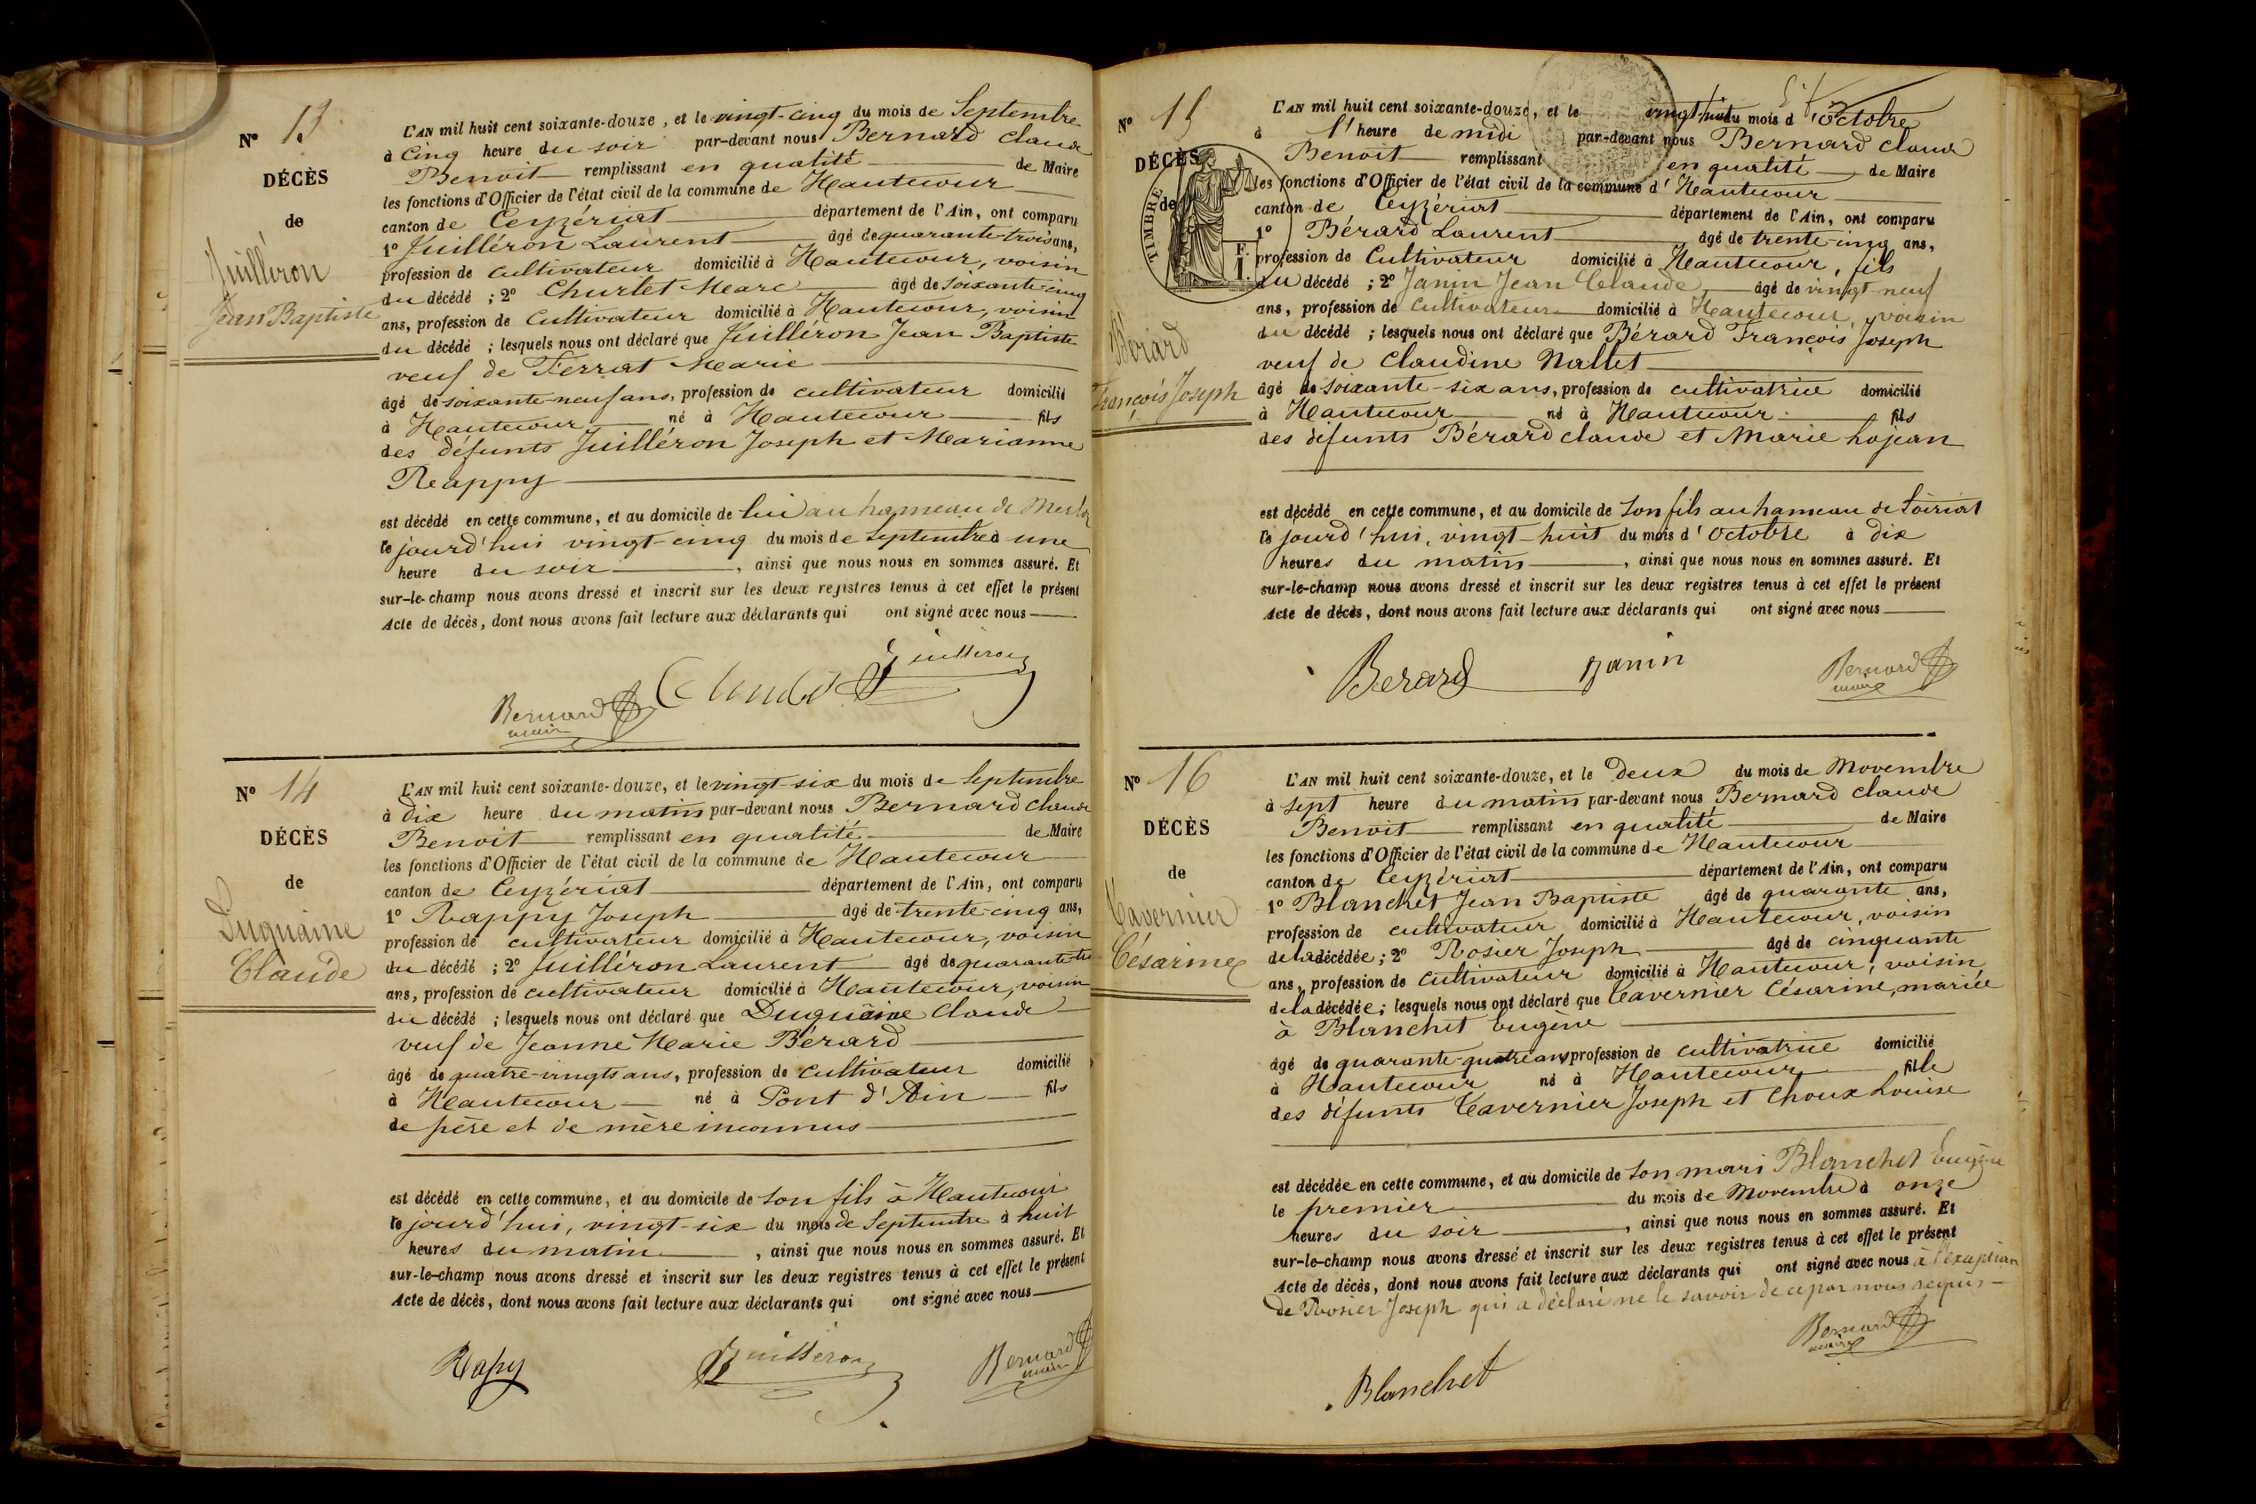 Nº 13
DÉCÈS
de
Juilléron
Jean Baptiste
L'AN mil huit cent soixante-douze, et le vingt-cinq du mois de Septembre
à Cinq heure du soir par-devant nous Bernard Claude
Benoit remplissant en qualité de Maire
les fonctions d'Officier de l'état civil de la commune de Hautecour
canton de Ceyzériat département de l'Ain, ont comparu
1º Juilléron Laurent âgé de quarante-trois ans,
profession de cultivateur domicilié à Hautecour, voisin
du décédé ; 2º Churlet Marc âgé de soixante-cinq
ans, profession de Cultivateur domicilié à Hautecour, voisin
du décédé ; lesquels nous ont déclaré que Juilléron Jean Baptiste
veuf de Ferrat Marie
âgé de soixante-neuf ans, profession de cultivateur domicilié
à Hautecour né à Hautecour fils
des défunts Juilléron Joseph et Marianne
Reappy
est décédé en cette commune, et au domicile de lui au hameau de
le jourd'hui vingt-cinq du mois de Septembre à une
heure du soir, ainsi que nous nous en sommes assuré. Et
sur-le-champ nous avons dressé et inscrit sur les deux registres tenus à cet effet le présent
Acte de décès, dont nous avons fait lecture aux déclarants qui ont signé avec nous
Juilleron
Bernard
maire
Nº 14
DÉCÈS
de
Duquaine
Claude
L'AN mil huit cent soixante-douze, et le vingt-six du mois de Septembre
à dix heure du matin par-devant nous Bernard Claude
Benoit remplissant en qualité de Maire
les fonctions d'Officier de l'état civil de la commune de Hautecour
canton de Ceyzériat département de l'Ain, ont comparu
1º Rappy Joseph âgé de trente-cinq ans,
profession de cultivateur domicilié à Hautecour, voisin
du décédé ; 2º Juilléron Laurent âgé de quarante-trois
ans, profession de cultivateur domicilié à Hautecour, voisin
du décédé ; lesquels nous ont déclaré que Duquaine Claude
veuf de Jeanne Marie Bérard
âgé de quatre-vingts ans, profession de cultivateur domicilié
à Hautecour né à Pont d'Ain fils
de père et de mère inconnus
est décédé en cette commune, et au domicile de son fils à Hautecour
le jourd'hui, vingt-six du mois de Septembre à huit
heures du matin, ainsi que nous nous en sommes assuré. Et
sur-le-champ nous avons dressé et inscrit sur les deux registres tenus à cet effet le présent
Acte de décès, dont nous avons fait lecture aux déclarants qui ont signé avec nous
Rapy Juilleron Bernard
maire
Nº 15
DÉCÈS
de
TIMBRE
F.
Bérard
François Joseph
L'AN mil huit cent soixante-douze, et le vingt-huit du mois d'Octobre
à l'heure de midi par-devant nous Bernard Claude
Benoit remplissant en qualité de Maire
les fonctions d'Officier de l'état civil de la commune d'Hautecour
canton de Ceyzériat département de l'Ain, ont comparu
1º Bérard Laurent âgé de trente-cinq ans,
profession de Cultivateur domicilié à Hautecour, fils
du décédé ; 2º Janin Jean Claude âgé de vingt-neuf
ans, profession de cultivateur domicilié à Hautecour, voisin
du décédé ; lesquels nous ont déclaré que Bérard François Joseph
veuf de Claudine Nallet
âgé de soixante-six ans, profession de cultivatrice domicilié
à Hautecour né à Hautecour fils
des défunts Bérard Claude et Marie Lojean
est décédé en cette commune, et au domicile de son fils au hameau de
le jourd'hui, vingt-huit du mois d'Octobre à dix
heures du matin, ainsi que nous nous en sommes assuré. Et
sur-le-champ nous avons dressé et inscrit sur les deux registres tenus à cet effet le présent
Acte de décès, dont nous avons fait lecture aux déclarants qui ont signé avec nous
Berard Janin Bernard
maire
Nº 16
DÉCÈS
de
Tavernier
Césarine
L'AN mil huit cent soixante-douze, et le deux du mois de Novembre
à sept heure du matin par-devant nous Bernard Claude
Benoit remplissant en qualité de Maire
les fonctions d'Officier de l'état civil de la commune de Hautecour
canton de Ceyzériat département de l'Ain, ont comparu
1º Blanchet Jean Baptiste âgé de quarante ans,
profession de cultivateur domicilié à Hautecour, voisin
de la décédée ; 2º Rosier Joseph âgé de cinquante
ans, profession de cultivateur domicilié à Hautecour, voisin
de la décédée ; lesquels nous ont déclaré que Tavernier Césarine, mariée
à Blanchet Eugène
âgé de quarante-quatre ans, profession de cultivatrice domicilié
à Hautecour né à Hautecour fille
des défunts Tavernier Joseph et Choux Louise
est décédée en cette commune, et au domicile de son mari Blanchet Eugène
le premier du mois de Novembre à onze
heures du soir, ainsi que nous nous en sommes assuré. Et
sur-le-champ nous avons dressé et inscrit sur les deux registres tenus à cet effet le présent
Acte de décès, dont nous avons fait lecture aux déclarants qui ont signé avec nous à l'exception
de Rosier Joseph qui a déclaré ne le savoir de ce par nous requis
Bernard
maire
Blanchet